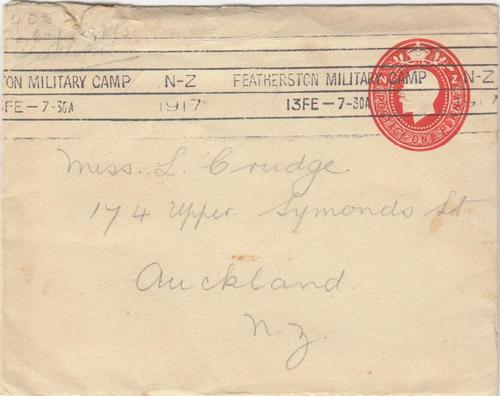 400
TON MILITARY CAMP N-Z FEATHERSTON MILITARY CAMP N
FE-7-30A 1917 13FE-7-30A 17
POSTAGE ONE PENNY
Miss. L. Crudge.
174 Upper Symonds St
Auckland.
N.Z.